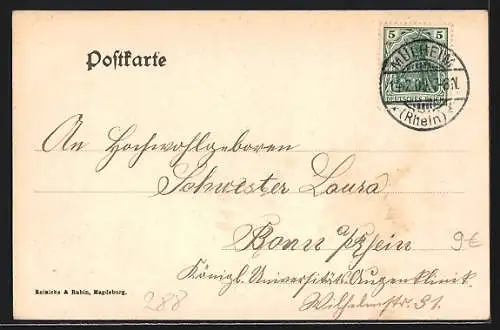 Postkarte
5 5
MÜLHEIM
(Rhein)
An Hochwohlgeboren
Schwester Laura
Bonn a/Rhein
9€
Königl. Universitäts Augenklinik
Wilhelmstr. 31.
Reinicke & Rubin, Magdeburg.
288